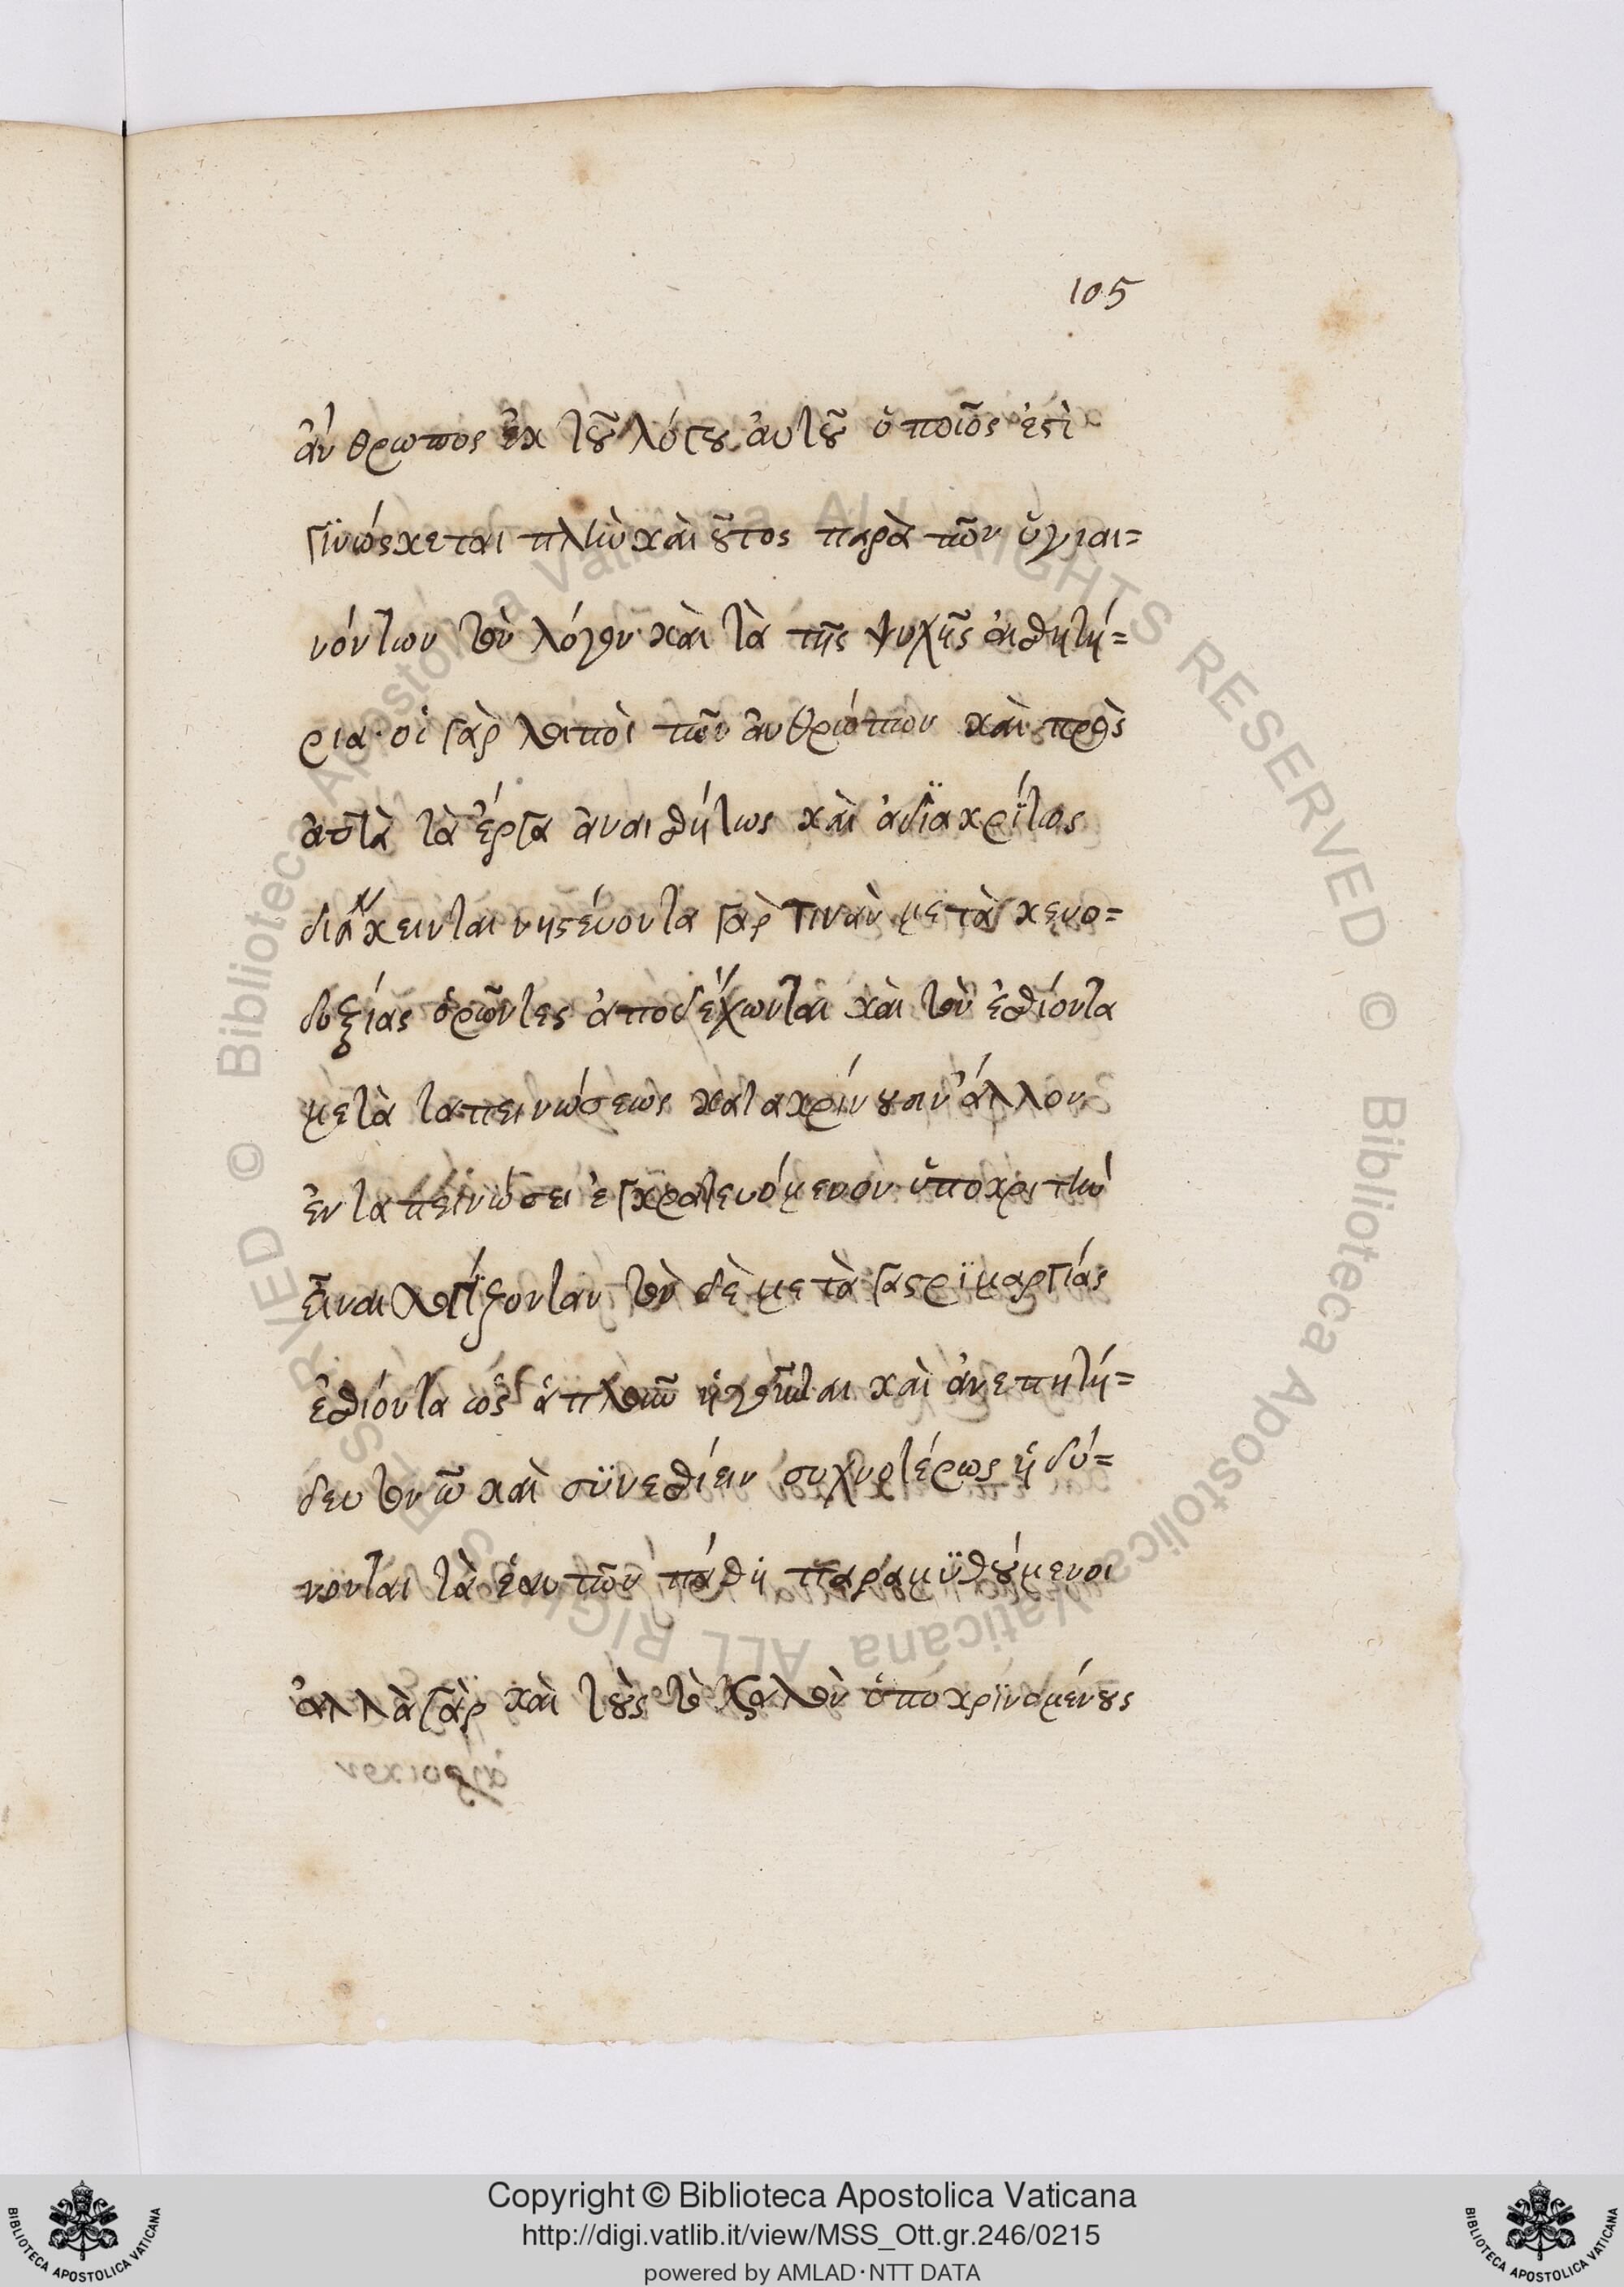 105
ἀν́θρωπος ἐκ τοῦ λόγου αὐτοῦ ὁποῖος ἐστὶ
γϊνώσκεται πλὴν καὶ οὗτος παρὰ τῶν ὑγιαι=
νόντων τὸν λόγον καὶ τὰ τῆς ψυχῆς αἰσθητή=
ρια· οἱ γὰρ λοιποὶ τῶν ἀνθρώπων καὶ πρὸς
αὐτὰ τὰ ἔργα ἀναισθήτως καὶ ἀδϊακρίτως
διάκεινται νηστεύοντα γὰρ τινὰν μετὰ κενο=
δοξίας ὁρῶντες ἀποδέχωνται καὶ τὸν ἐσθίοντα
μετὰ ταπεινώσεως κατακρίνουσιν ἄλλον
ἐν ταπεινώσει ἐγκρατευόμενον ὑποκριτὴν
εἶναι λογίζονται τὸν δὲ μετὰ γαστρϊμαργίας
ἐσθίοντα ὡς ἁπλοϊκῶ ἡγοῦνται καὶ ἀνεπητή=
δευτον ῶ καὶ σϋνεσθίειν συχνοτέρως ἡδύ=
νονται τὰ ἑαυτῶν πάθη παραμϋθούμενοι
ἀλλὰ γὰρ καὶ τοὺς τὸ σαλὸν ὑποκρϊνομένους
Copyright © Biblioteca Apostolica Vaticana
http://digi.vatlib.it/view/MSS_Ott.gr.246/0215
powered by AMLAD·NTT DATA
BIBLIOTECA APOSTOLICA VATICANA
BIBLIOTECA APOSTOLICA VATICANA
© Biblioteca Apostolica Vaticana ALL RIGHTS RESERVED © Biblioteca Apostolica Vaticana ALL RIGHTS RESERVED